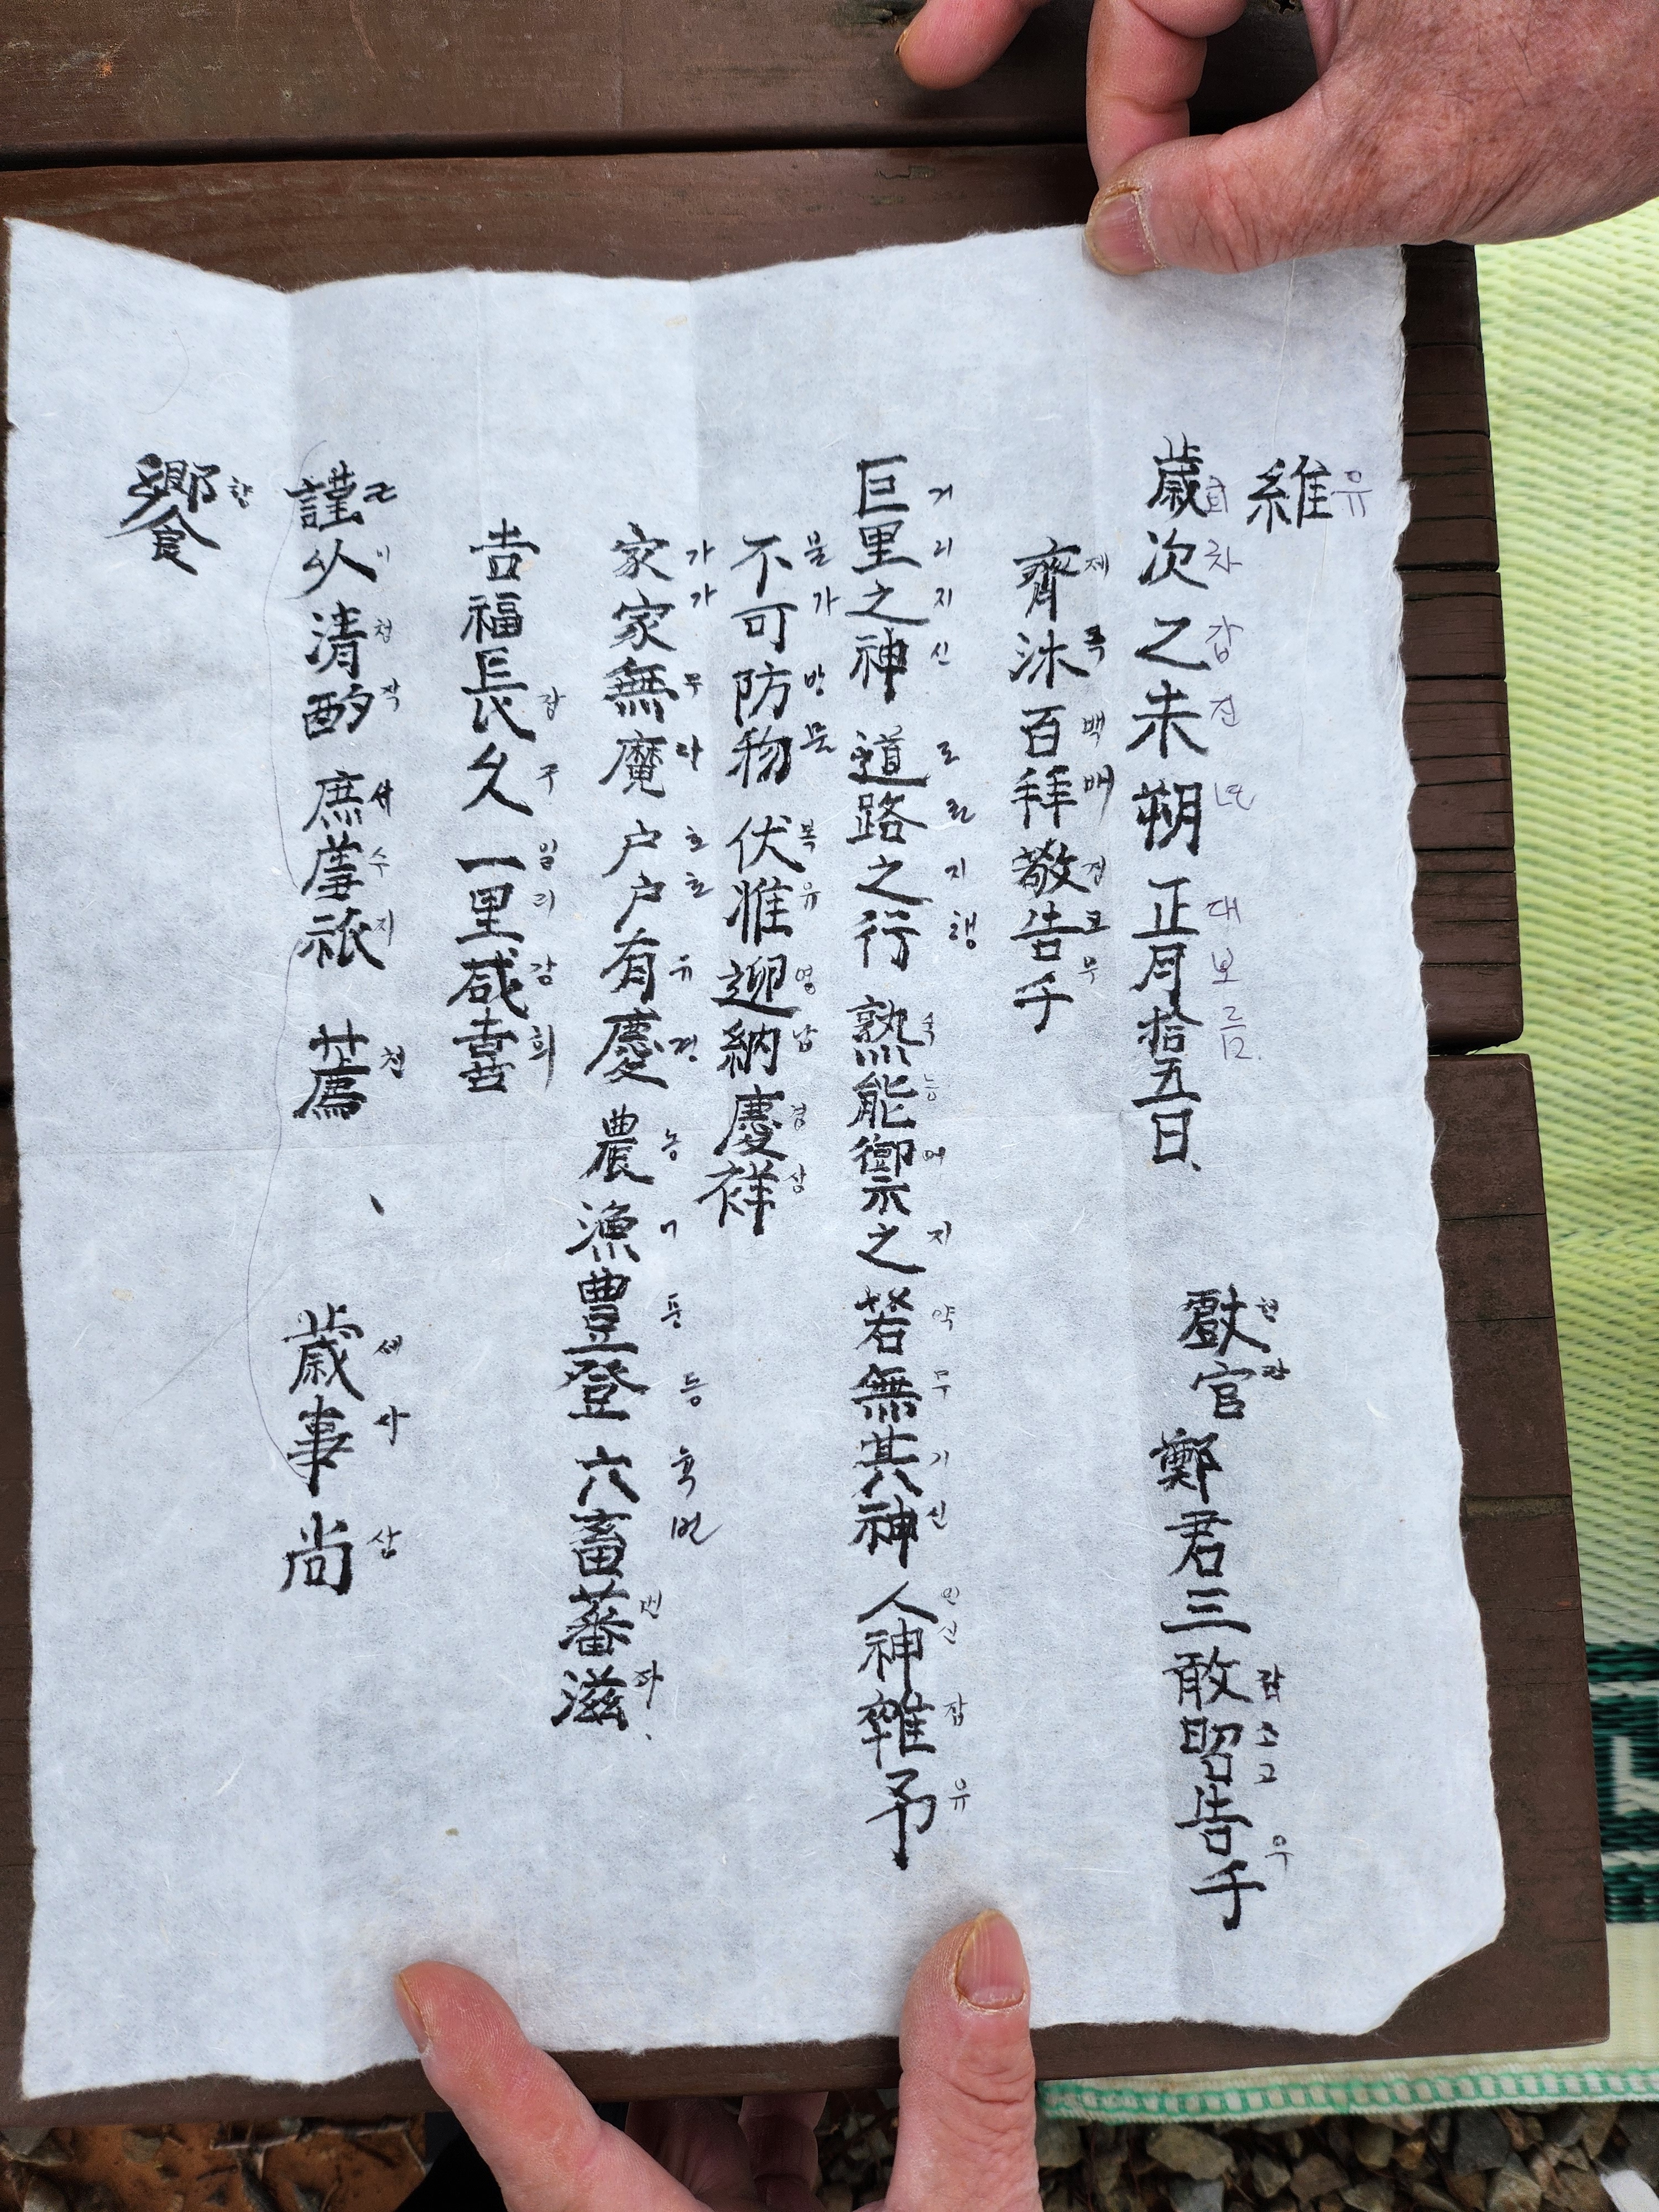 維 유
歲次乙未朔正月拾五日、 獻官鄭君三敢昭告于
세차갑진년 대보름. 헌관 감소고 우
齊沐百拜敬告于
제목백배경고우
巨里之神 道路之行 熟能禦之 若無其神 人神雜予
거리지신 로지행 숙능어지 약무기신 인신잡유
不可防物 伏惟迎納慶祥
불가방물 복유영납경상
家家無魔 户户有慶 農漁豊登 六畜蕃滋
가가무 호호유경 농어풍등 육 번자
吉福長久 一里咸喜
장구 일리감희
謹以清酌 庶羞祗 薦 、 歲事尚
근이청작 서수지 천 세사상
饗 향